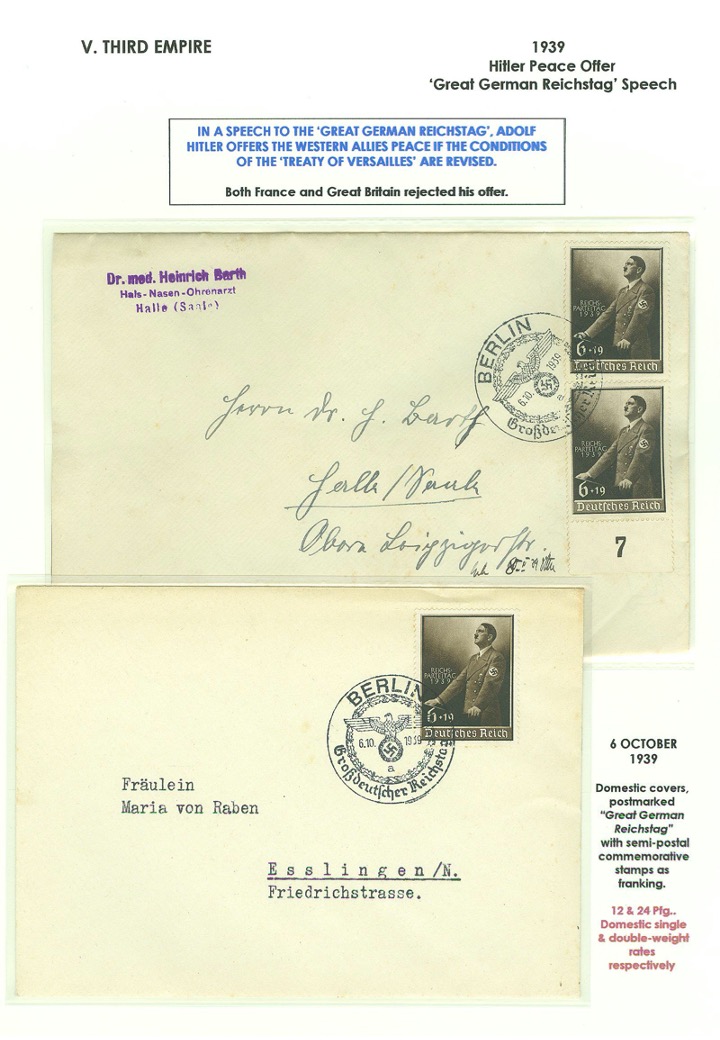 V. THIRD EMPIRE
1939
Hitler Peace Offer
‘Great German Reichstag’ Speech
IN A SPEECH TO THE ‘GREAT GERMAN REICHSTAG’, ADOLF
HITLER OFFERS THE WESTERN ALLIES PEACE IF THE CONDITIONS
OF THE ‘TREATY OF VERSAILLES’ ARE REVISED.
Both France and Great Britain rejected his offer.
Dr. med. Heinrich Barth
Hals-Nasen-Ohrenarzt
Halle (Saale)
REICHS-
PARTEITAG
1939
6+19
Deutsches Reich
BERLIN
6.10. 1939
a
Großde
REICHS-
PARTEITAG
1939
6+19
Deutsches Reich
7
Herrn Dr. H. Barth
Halle/Saale
Obere Leipzigerstr.
REICHS-
PARTEITAG
1939
6+19
Deutsches Reich
BERLIN
6.10. 1939
a
Großdeutscher Reichsta
Fräulein
Maria von Raben
Esslingen/N.
Friedrichstrasse.
6 OCTOBER
1939
Domestic covers,
postmarked
“Great German
Reichstag”
with semi-postal
commemorative
stamps as
franking.
12 & 24 Pfg..
Domestic single
& double-weight
rates
respectively